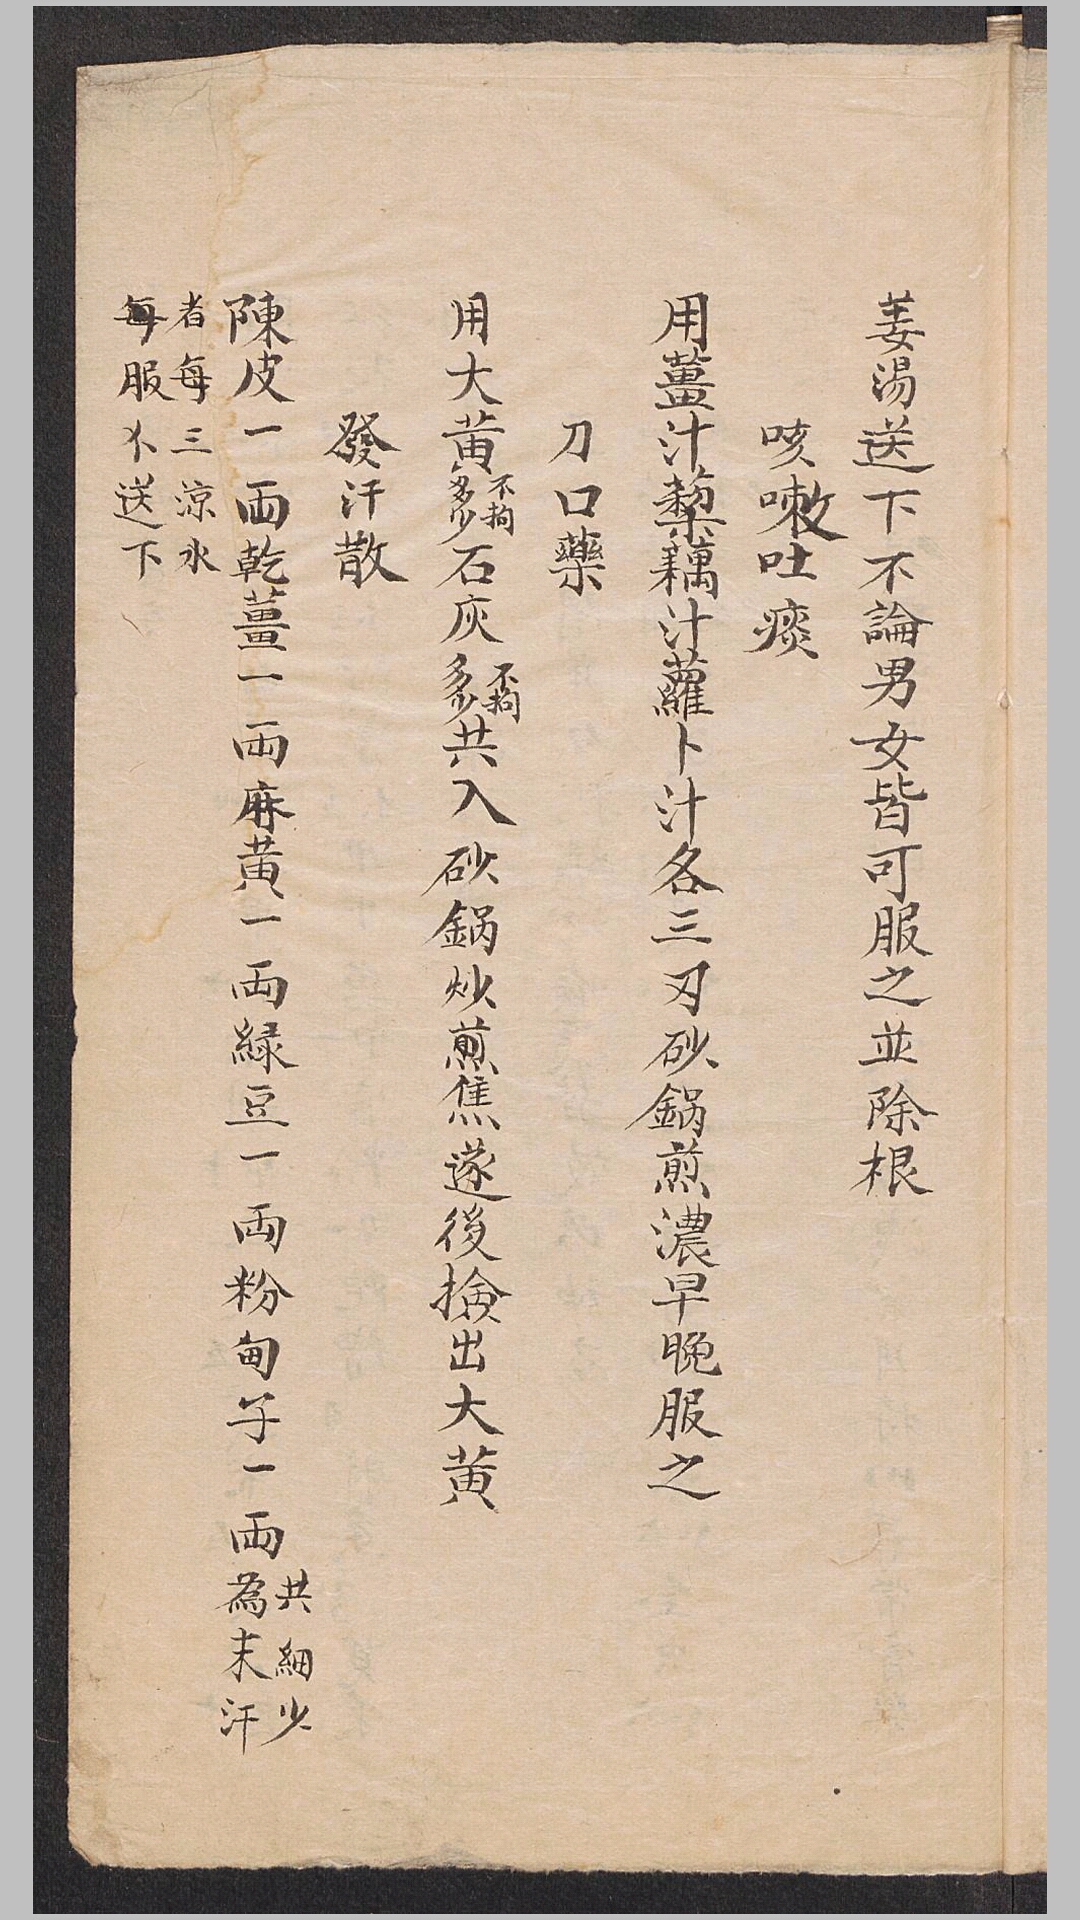 姜湯送下不論男女皆可服之並除根
咳嗽吐痰
用薑汁藕汁蘿卜汁各三刃砂鍋煎濃早晚服之
刀口藥
用大黄不拘多少石灰不拘多少共入砂鍋炒煎焦遂後撿出大黄
發汗散
陳皮一両乾薑一両麻黄一両緑豆一両粉甸子一両共細少為末汗
者每三涼水
每服送下